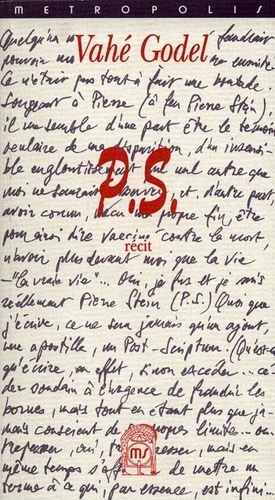 METROPOLIS
Quelqu'un
Vahé Godel
faudrait
pouvoir
ensuite.
Ce n'était pas tout à fait une boutade.
Songeant à Pierre (à feu Pierre Stein),
il me semble d'une part être le témoin
oculaire de ma disposition, d'un insensible
engloutissement
nul autre que
moi ne saurait
et d'autre part,
avoir connu, vécu ma propre fin, être
P.S.
pour ainsi dire vacciné contre la mort,
n'avoir plus devant moi que la vie
récit
– "la vraie vie"... Oui, je fus et je suis
réellement Pierre Stein (P.S.) Quoi que
j'écrive, ce ne sera jamais qu'un ajout,
une apostille, un Post-Scriptum. (Qu'est-ce
qu'écrire, en effet, sinon excéder... cé-
der soudain à l'urgence de franchir les
bornes, mais tout en étant plus que ja-
mais conscient de
propres limites... ou-
trepasser, oui,
passer, mais en
même temps s'
de mettre un
terme à ce qui, par essence, est infini
MS